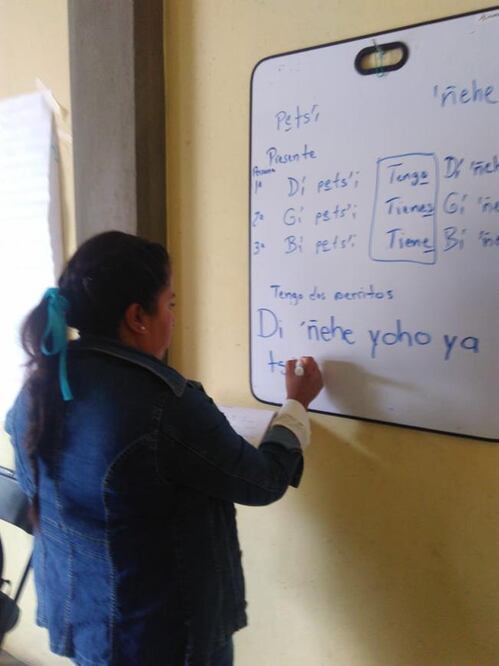 'ñehe
Pe̲ts'i
Presente
Persona
1ª Dí pe̲ts'i Tengo Dí 'ñeh
2ª Gí pe̲ts'i Tienes Gí 'ñe
3ª Bí pe̲ts'i Tiene Bí 'ñe
Tengo dos perritos
Di 'ñehe yoho ya
ts